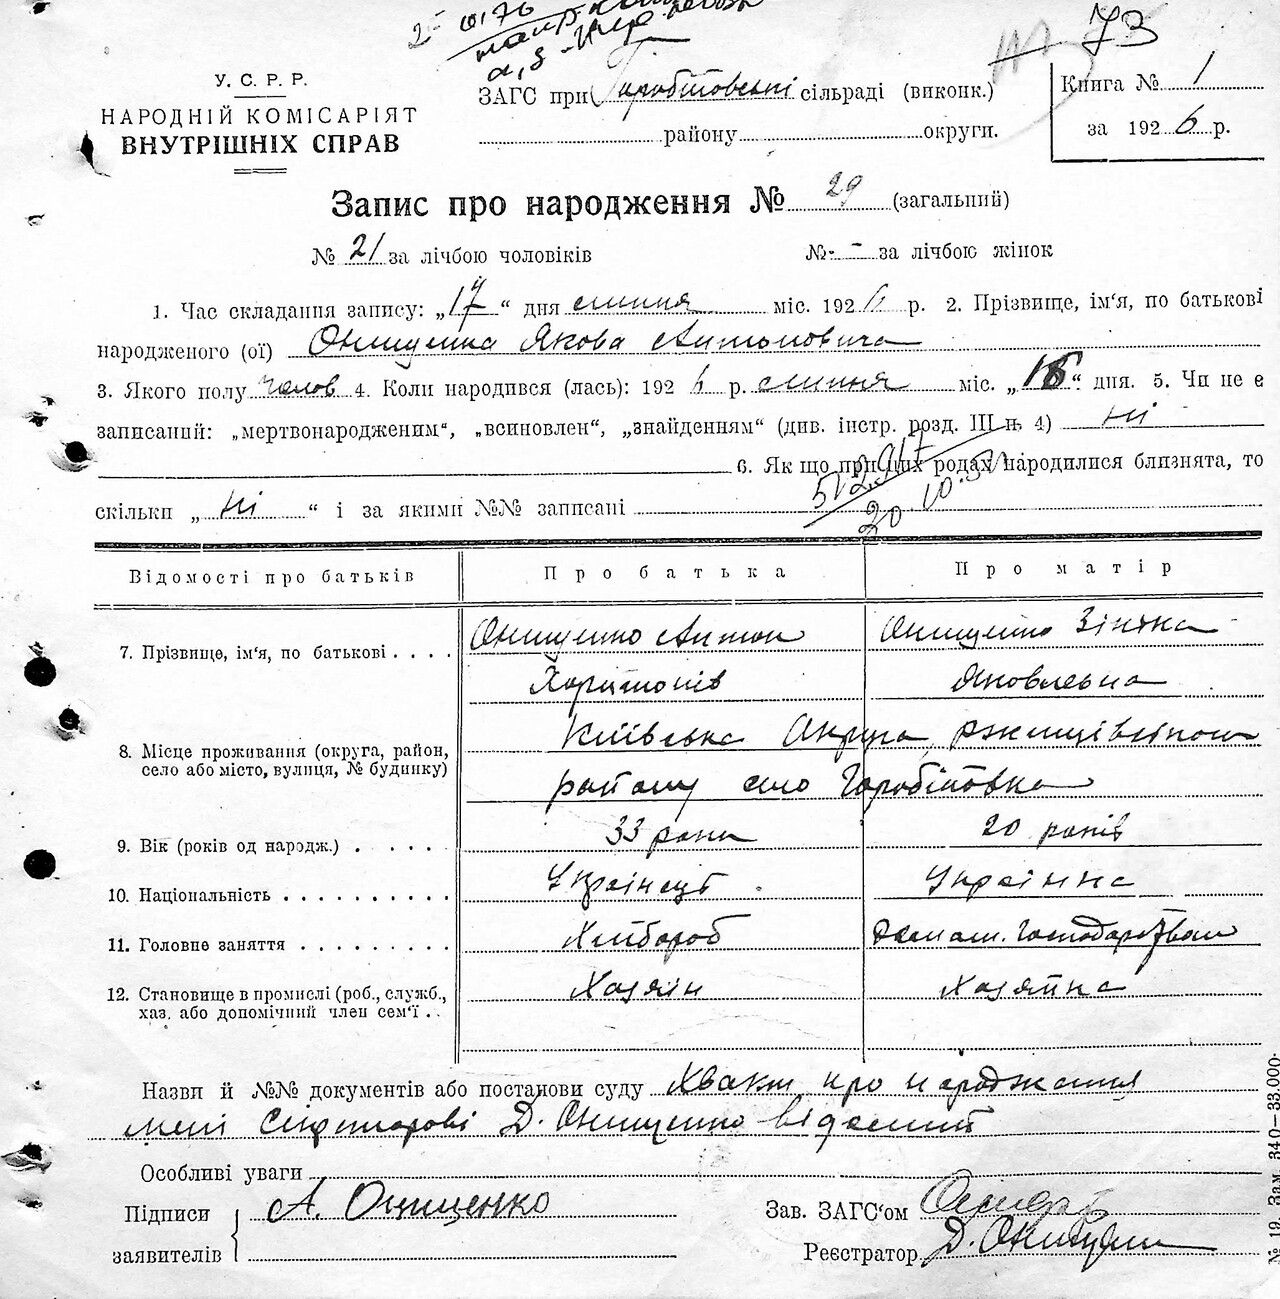 73
У. С. Р. Р.
НАРОДНІЙ КОМІСАРІЯТ
ВНУТРІШНІХ СПРАВ
ЗАГС при сільраді (виконк.)
району округи.
Книга № 1
за 1926 р.
Запис про народження № 29 (загальний)
№ 21 за лічбою чоловіків № - за лічбою жінок
1. Час складання запису: „17“ дня липня міс. 1926 р. 2. Прізвище, ім'я, по батькові
народженого (ої) Онищенка Якова Антоновича
3. Якого полу чолов 4. Коли народився (лась): 1926 р. липня міс. „ “ дня. 5. Чи не є
записаний: „мертвонародженим“, „всиновлен“, „знайденням“ (див. інстр. розд. III п. 4) ні
6. Як що при цих родах народилися близнята, то
скільки „ні“ і за якими №№ записані
Відомості про батьків Про батька Про матір
7. Прізвище, ім'я, по батькові Онищенко Антон Онищенко Зінька
Харитонів Яковлевна
8. Місце проживання (округа, район,
село або місто, вулиця, № будинку) Київська Округа,
району село Горобіївка
9. Вік (років од народж.) 33 роки 20 років
10. Національність Українець Українка
11. Головне заняття Хлібороб
12. Становище в промислі (роб., служб.,
хаз. або допомічний член сем'ї Хазяїн Хазяйка
Назви й №№ документів або постанови суду про народження
Д. Онищенко
Особливі уваги
Підписи
заявителів
А. Онищенко
Зав. ЗАГС'ом
Реєстратор Д. Онищенко
№ 19. Зам. 340—33.000.